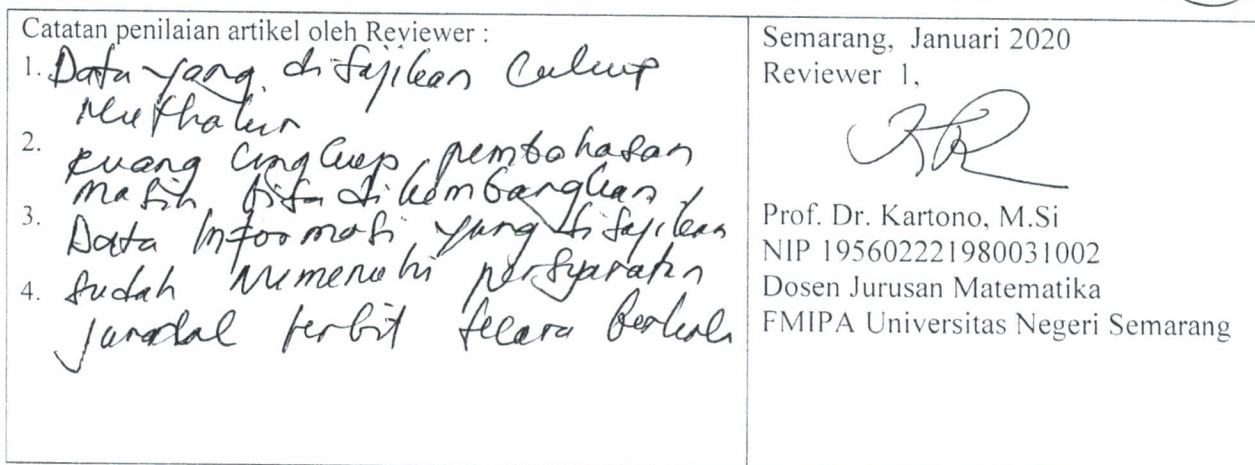 Catatan penilaian artikel oleh Reviewer :
1. Data yang disajikan cukup
Muthakir
2. Ruang lingkup pembahasan
masih bisa dikembangkan,
3. Data Informasi yang disajikan
4. Sudah Memenuhi persyaratan
jurnal terbit secara berkala
Semarang, Januari 2020
Reviewer 1,
Prof. Dr. Kartono, M.Si
NIP 195602221980031002
Dosen Jurusan Matematika
FMIPA Universitas Negeri Semarang